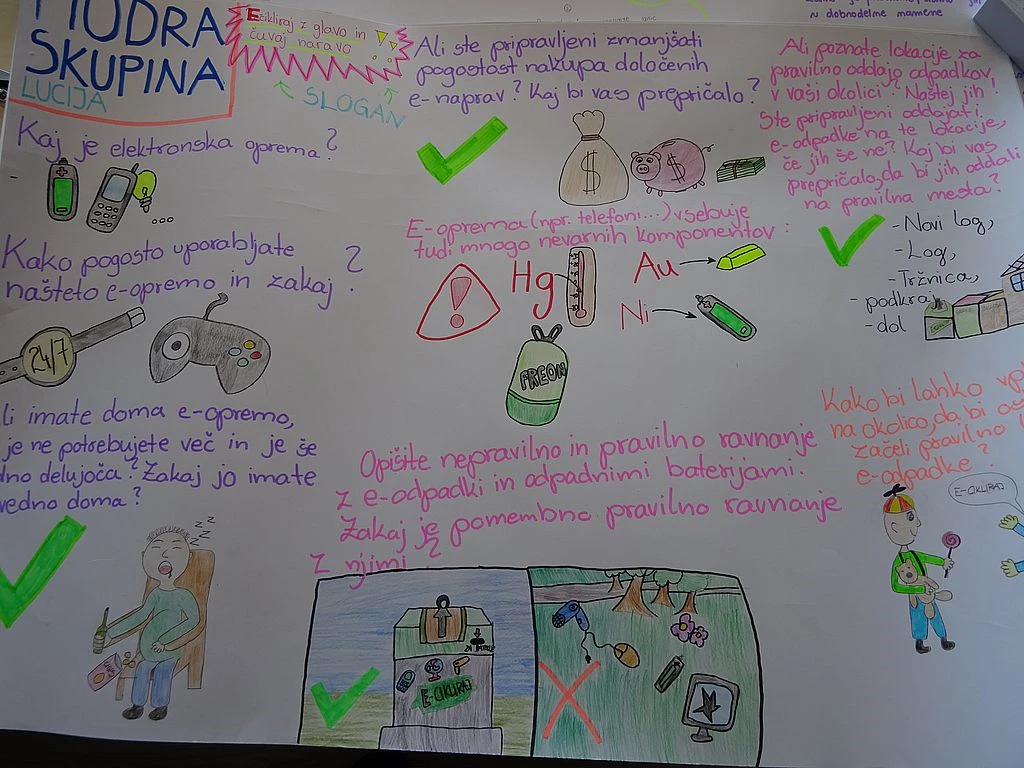 MODRA
SKUPINA
LUCIJA
Ecikliraj z glavo in
čuvaj naravo !!
SLOGAN
Kaj je elektronska oprema?
...
Kako pogosto uporabljate
našteto e-opremo in zakaj?
24/7
li imate doma e-opremo,
je ne potrebujete več in je še
dno delujoča? Zakaj jo imate
vedno doma?
z z z z z
Ali ste pripravljeni zmanjšati
pogostost nakupa določenih
e-naprav? Kaj bi vas prepričalo?
$
$
E-oprema (npr. telefoni...) vsebuje
tudi mnogo nevarnih komponentov:
!
Hg
Au
Ni
FREON
Opišite nepravilno in pravilno ravnanje
z e-odpadki in odpadnimi baterijami.
Zakaj je pomembno pravilno ravnanje
z njimi?
E-CIKLIRAJ
N dobnodelne mamene
Ali poznate lokacije za
pravilno oddajo odpadkov,
v vaši okolici? Naštej jih!
Ste pripravljeni oddajati
e-odpadke na te lokacije,
če jih še ne? Kaj bi vas
prepričalo, da bi jih oddali
na pravilna mesta?
- Novi log,
- Log,
- Tržnica,
- podkraj
- dol
Kako bi lahko vpl
na okolico, da bi os
začeli pravilno
e-odpadke?
E-CIKLIRAJ